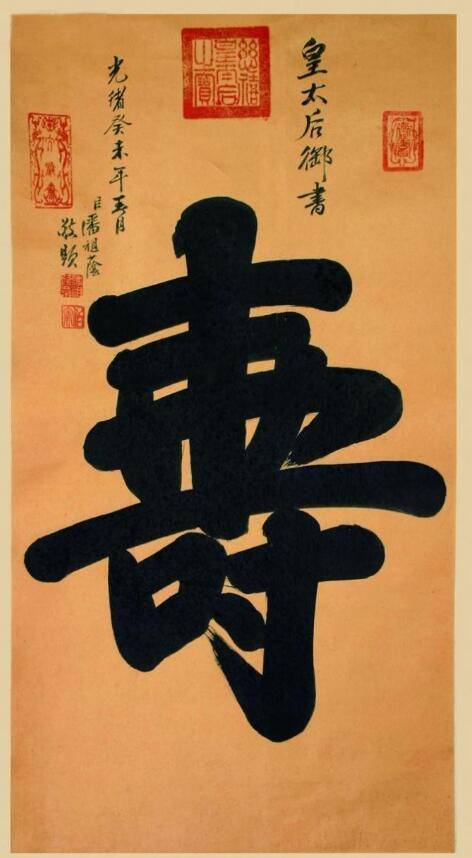 皇太后御書
慈禧
皇太后
之寶
壽
光緒癸未年五月
臣潘祖蔭
敬題